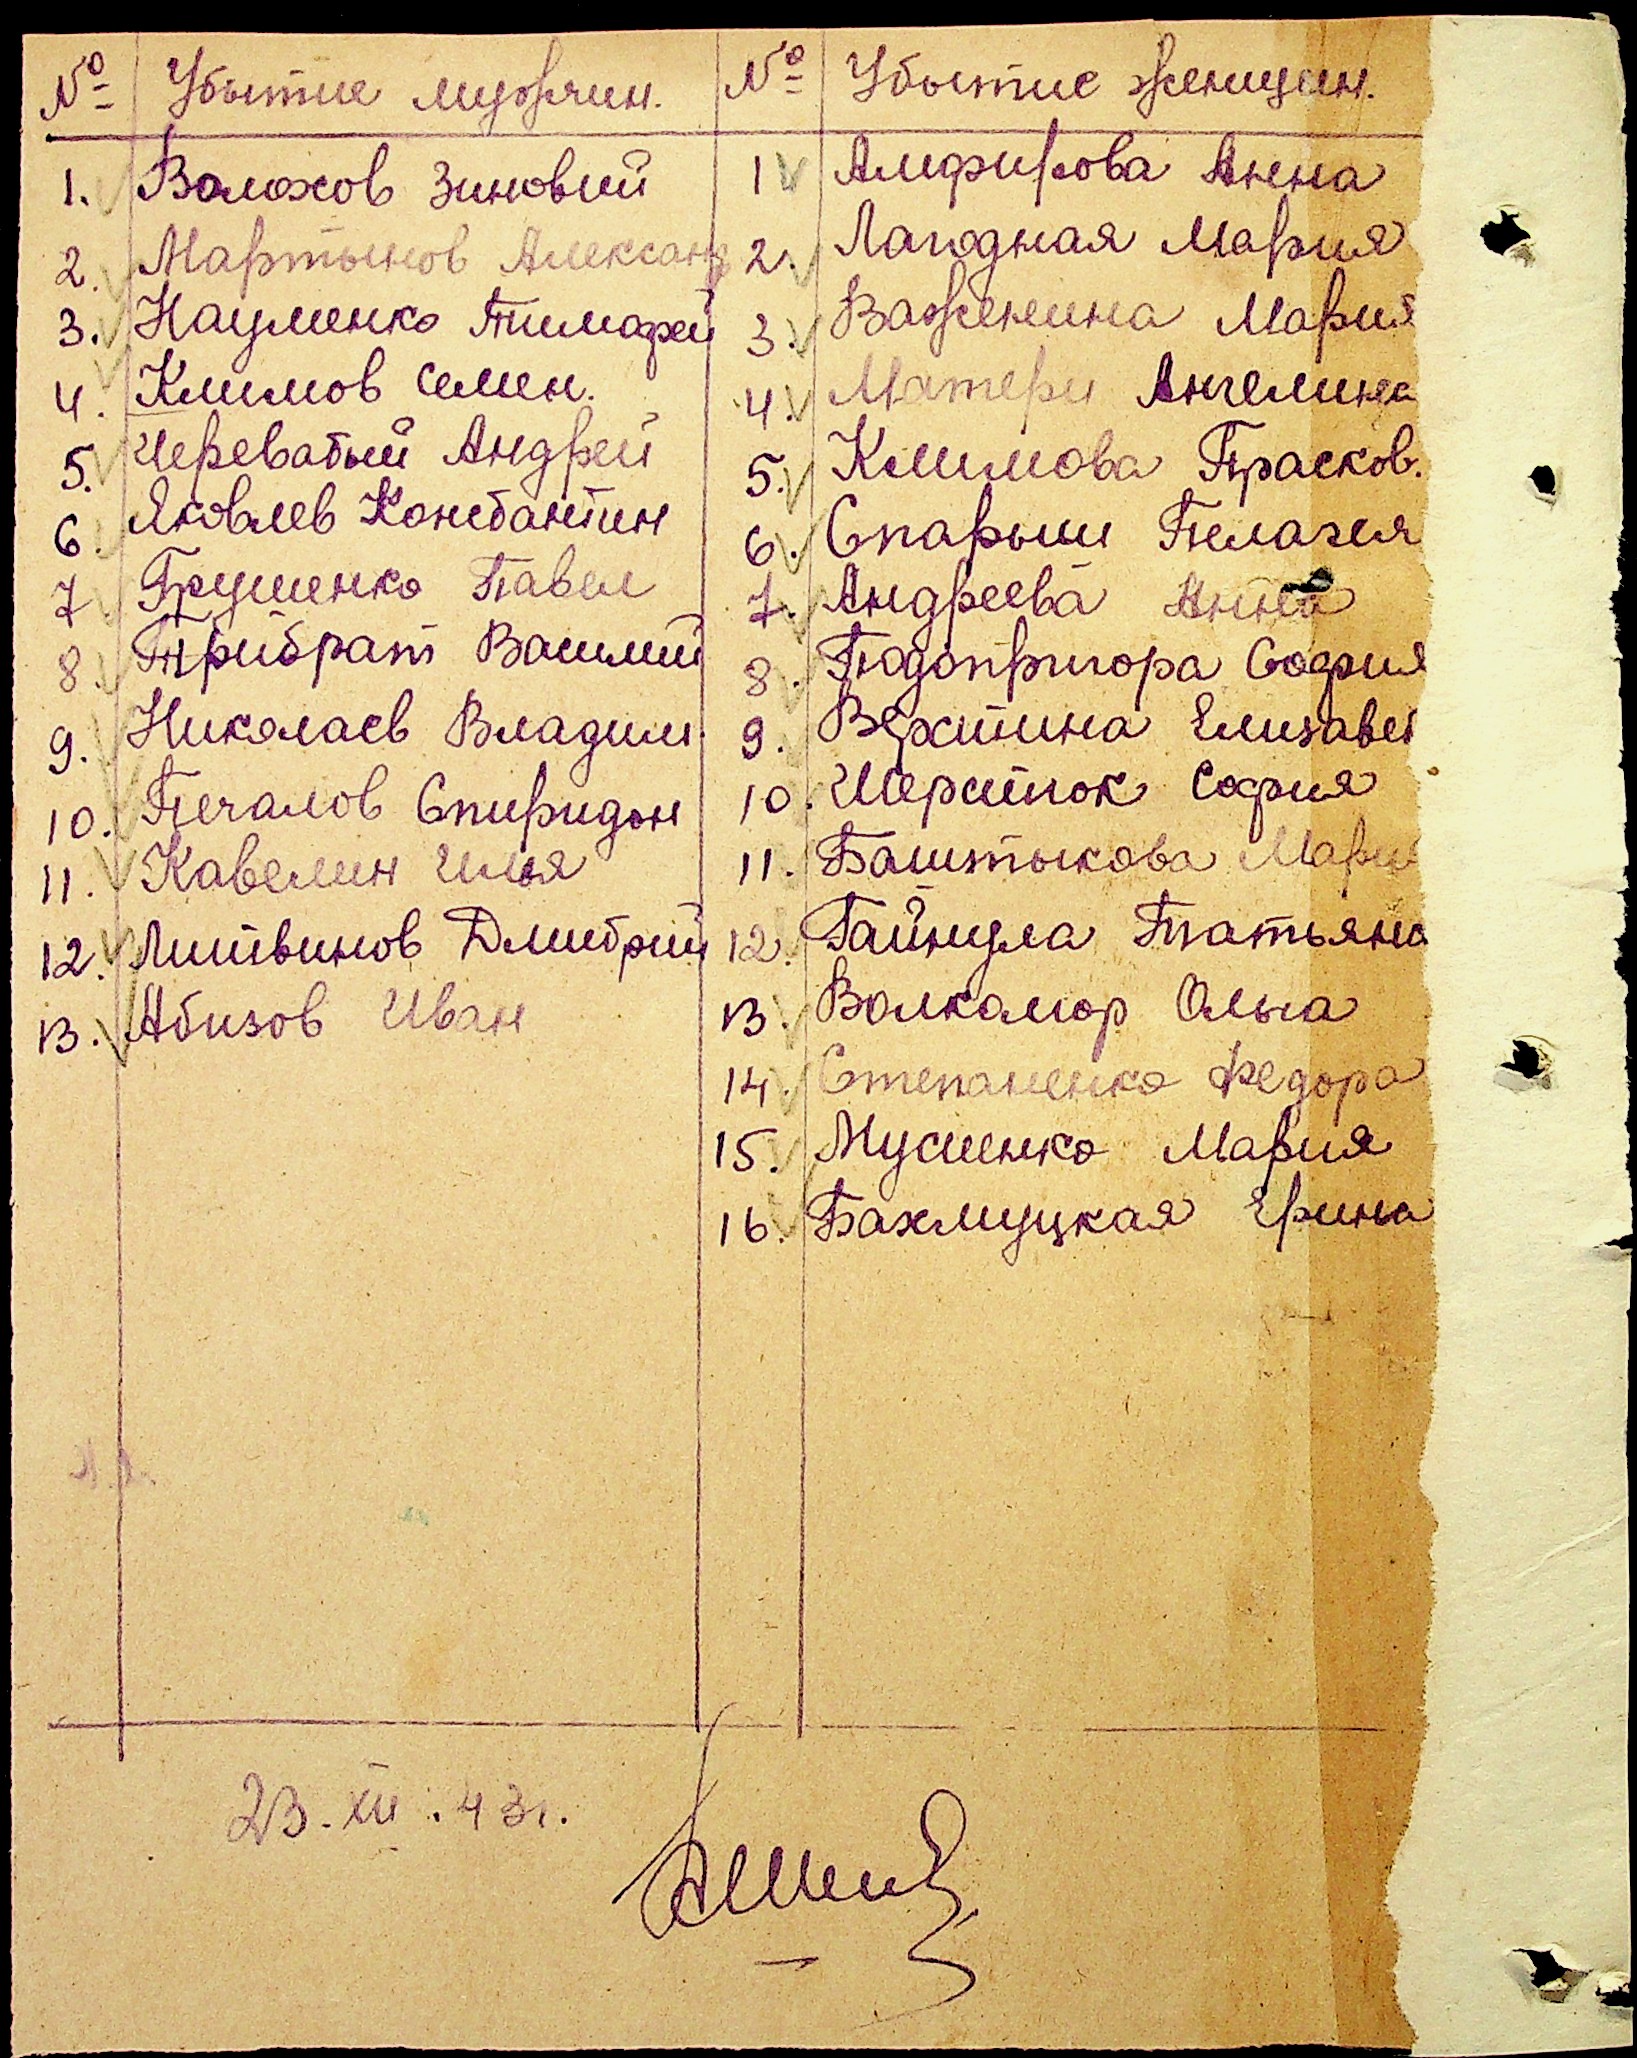 № Убытие мужчин. № Убытие женщин.
1. Волохов Зиновий 1 Алифирова Анна
2. Мартынов Александ 2. Лагодная Мария
3. Науменко Тимофей 3. Важенина Мария
4. Климов Семен. 4. Матери Ангелина
5. Череватый Андрей 5. Климова Прасков.
6. Яковлев Константин 6. Спарыш Пелагея
7 Грушенко Павел 7. Андреева Анна
8. Прибрат Василий 8. Подопригора София
9. Николаев Владим. 9. Верхтина Елизавет
10. Печалов Спиридон 10. Шерстюк София
11. Кавелин Илья 11. Баштыкова Мари
12. Литвинов Дмитрий 12. Гайнула Татьяна
13. Абизов Иван 13. Волкомор Ольга
14. Степаненко Федора
15. Мусиенко Мария
16. Бахмуцкая Ерина
23.XII.43г.